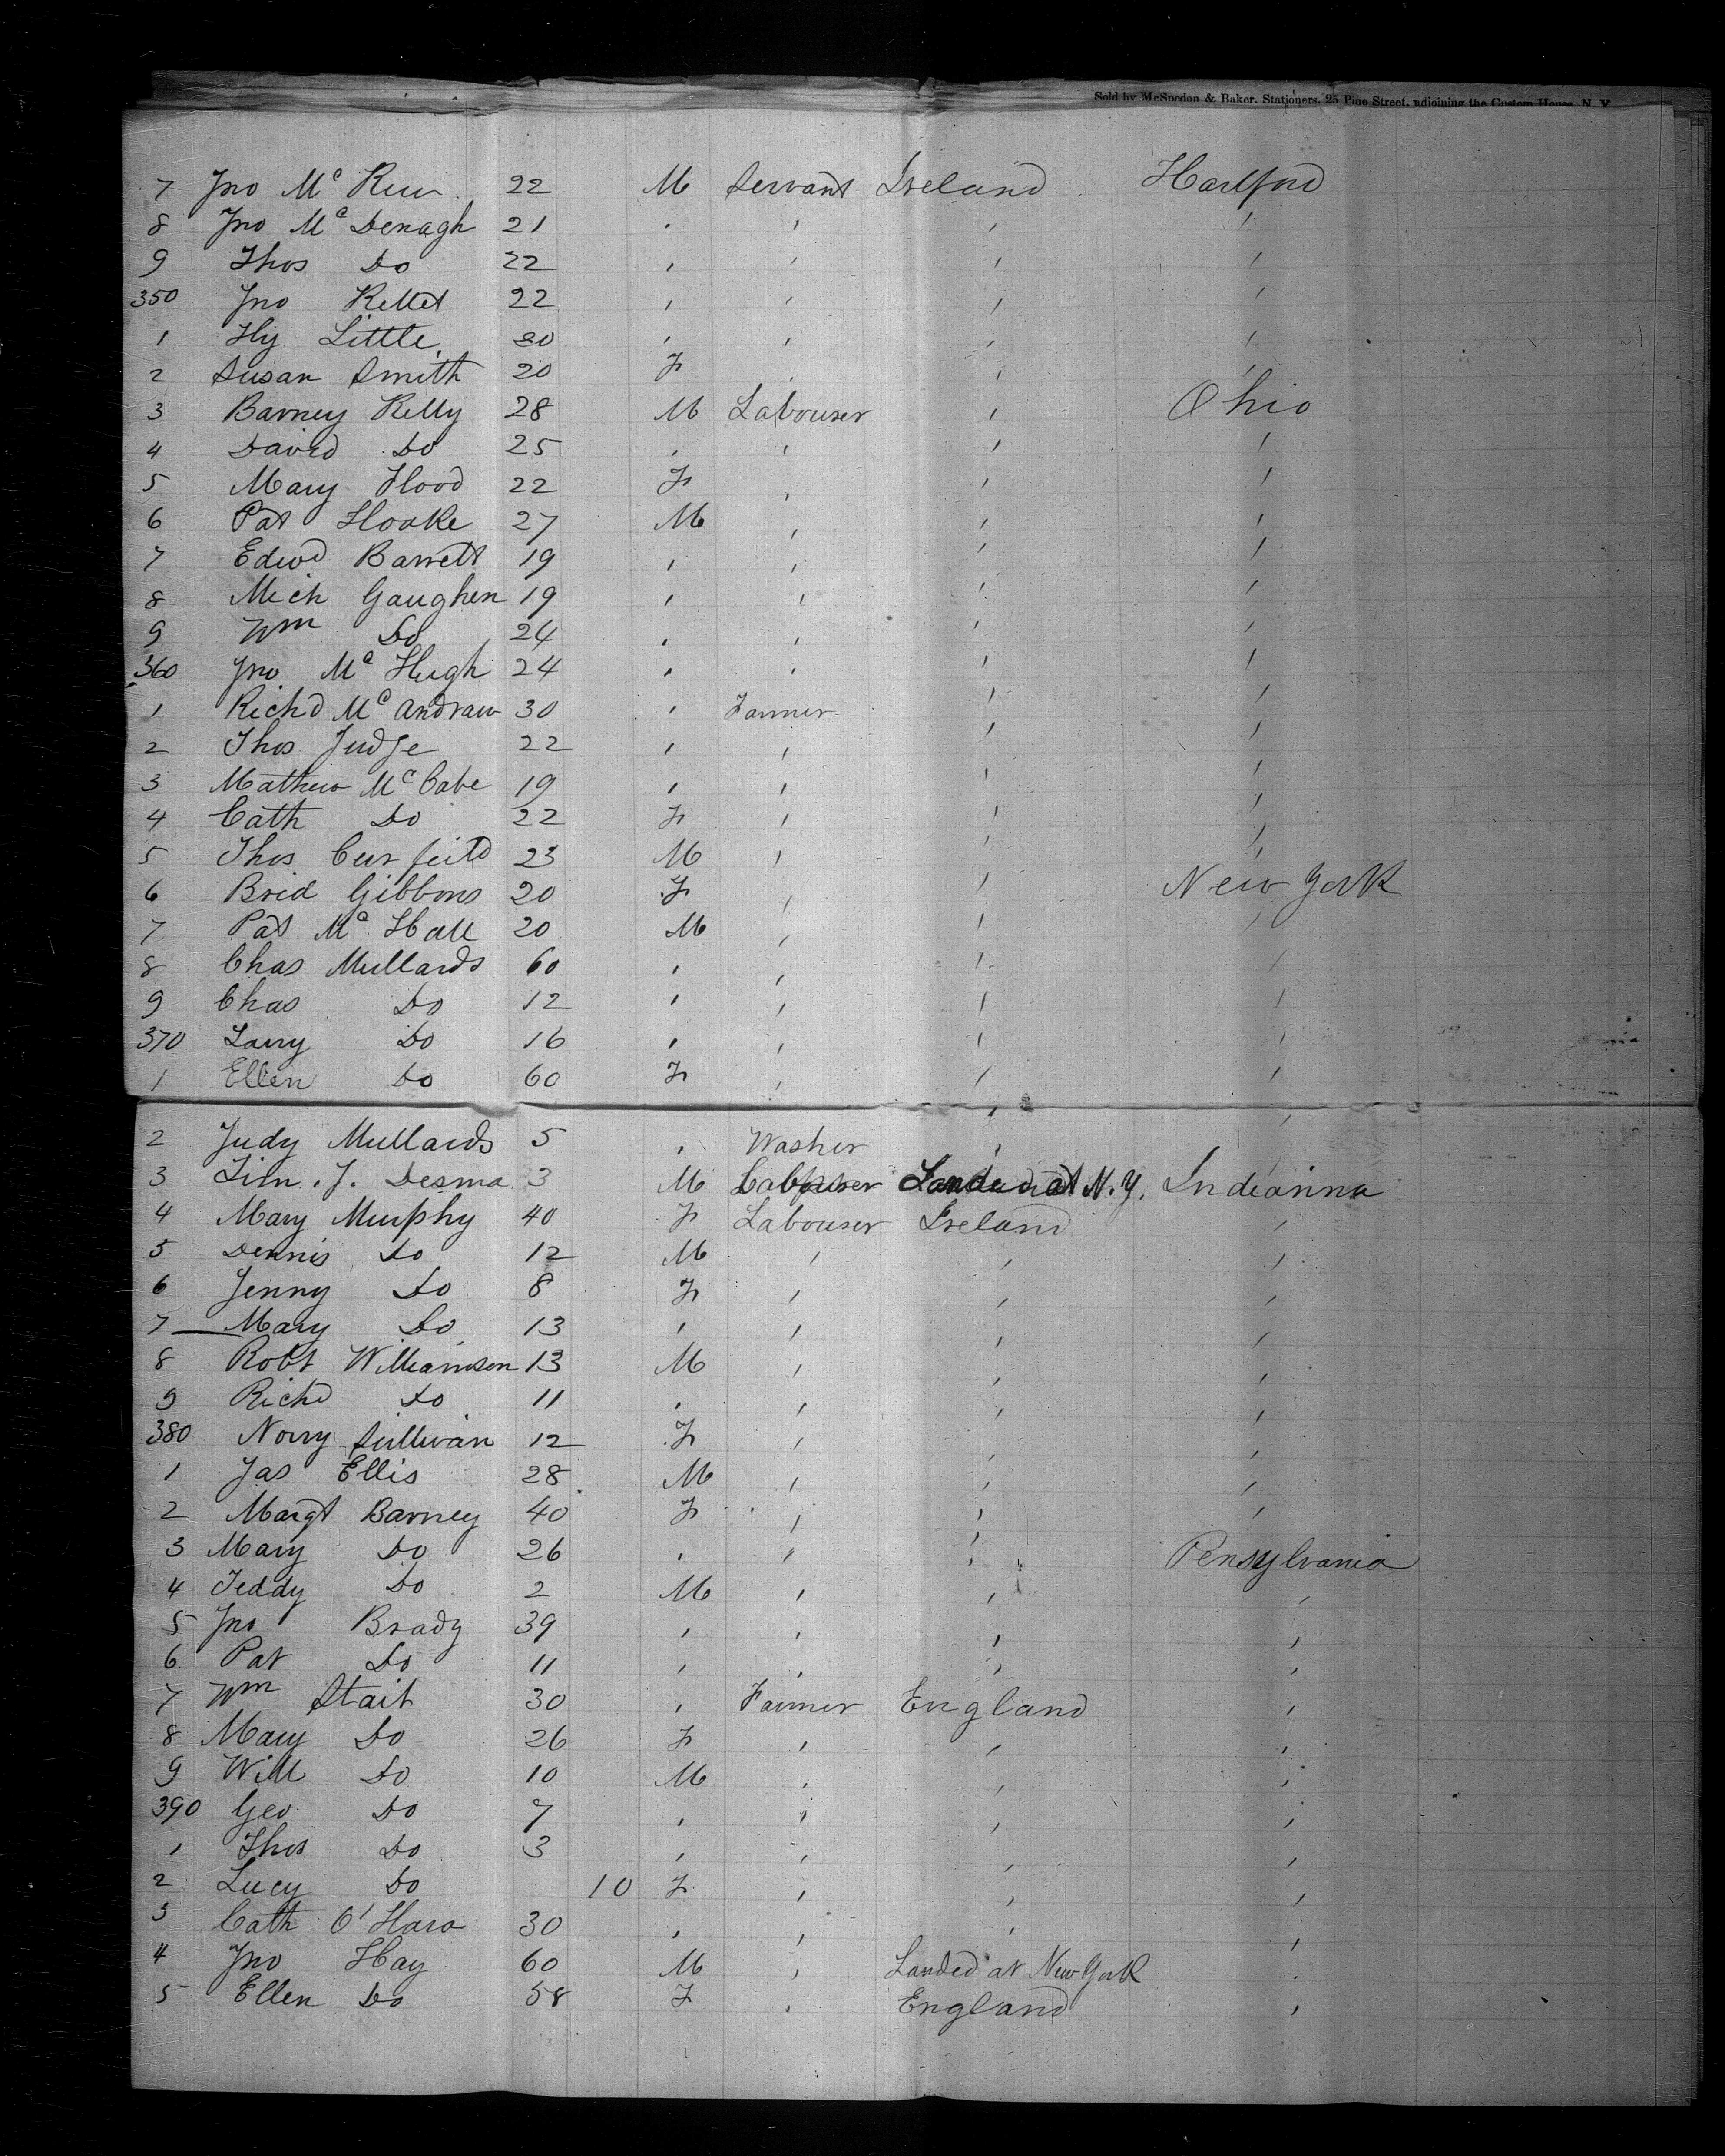 Sold by McSpedon & Baker, Stationers, 25 Pine Street, adjoining the Custom House, N. Y.
7 Jno Mc 22 M Servant Ireland Hartford
8 Jno Mc Denagh 21 " " " "
9 Thos Do 22 " " " "
350 Jno Kellet 22 " " " "
1 Hy Little 20 " " " "
2 Susan Smith 20 F " " "
3 Barney Kelly 28 M Labourer " Ohio
4 David Do 25 " " " "
5 Mary Flood 22 F " " "
6 Pat Hooke 27 M " " "
7 Edwd Barrett 19 " " " "
8 Mich Gaughen 19 " " " "
9 Wm Do 24 " " " "
360 Jno Mc Hugh 24 " " " "
1 Richd Mc Andraw 30 " Farmer " "
2 Thos Judge 22 " " " "
3 Mathew Mc Cabe 19 " " " "
4 Cath Do 22 F " " "
5 Thos 23 M " " "
6 Brid Gibbons 20 F " " New York
7 Pat Mc Hall 20 M " " "
8 Chas Mullards 60 " " " "
9 Chas Do 12 " " " "
370 Larry Do 16 " " " "
1 Ellen Do 60 F " " "
2 Judy Mullards 5 " Washer " "
3 Tim. J. Desmo 3 M Labourer Landed at N.Y. Indeanna
4 Mary Murphy 40 F Labourer Ireland "
5 Dennis Do 12 M " " "
6 Jenny Do 8 F " " "
7 Mary Do 13 " " " "
8 Robt Williamson 13 M " " "
9 Richd Do 11 " " " "
380 Norry Sullivan 12 F " " "
1 Jas Ellis 28 M " " "
2 Margt Barney 40 F " " "
3 Mary Do 26 " " " Pensylvania
4 Teddy Do 2 M " " "
5 Jno Brady 39 " " " "
6 Pat Do 11 " " " "
7 Wm Stait 30 " Farmer England "
8 Mary Do 26 F " " "
9 Will Do 10 M " " "
390 Geo Do 7 " " " "
1 Thos Do 3 " " " "
2 Lucy Do 10 F " " "
3 Cath O'Hara 30 " " " "
4 Jno Hay 60 M " Landed at New York "
5 Ellen Do 58 F " England "